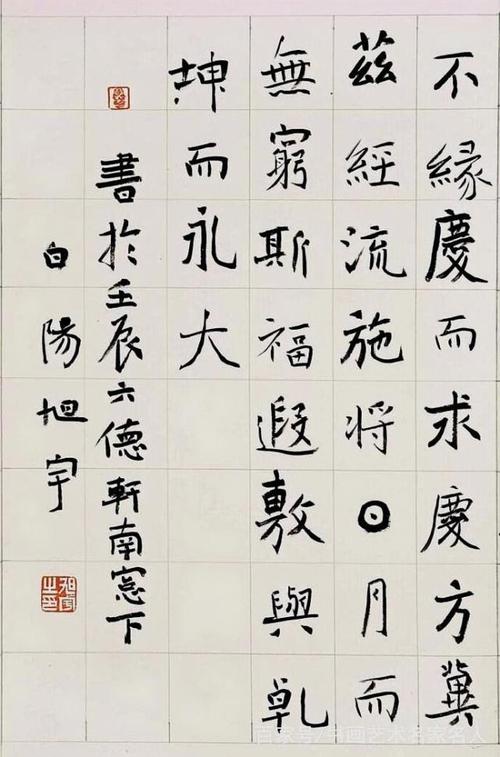 不緣慶而求慶方冀
茲經流施将日月而
無窮斯福遐敷與乾
坤而永大
書於壬辰六德軒南窓下
白陽旭宇
旭宇之印
百家号/书画艺术名家名人